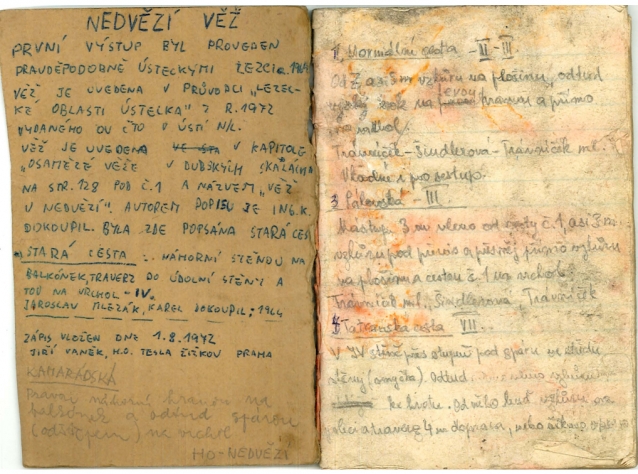 NEDVĚZÍ VĚŽ
PRVNÍ VÝSTUP BYL PROVEDEN
PRAVDĚPODOBNĚ ÚSTECKÝMI LEZCI
VĚŽ JE UVEDENA V PRŮVODCI „LEZEC-
KÉ OBLASTI ÚSTECKA" Z R. 1972
VYDANÉHO OV ČTO V ÚSTÍ N/L.
VĚŽ JE UVEDENA V KAPITOLE
„OSAMĚLÉ VĚŽE V DUBSKÝCH SKALÁCH
NA STR. 128 POD Č.1 A NÁZVEM „VĚŽ
V NEDVĚZÍ". AUTOREM POPISU JE ING. K.
DOKOUPIL. BYLA ZDE POPSÁNA STARÁ CES
STARÁ CESTA : NÁHORNÍ STĚNOU NA
BALKÓNEK, TRAVERZ DO ÚDOLNÍ STĚNY A
TOU NA VRCHOL - IV.
JAROSLAV PLEŽÁK, KAREL DOKOUPIL; 1944
ZÁPIS VLOŽEN DNE 1.8.1972
JIŘÍ VANĚK, H.O. TESLA ŽIŽKOV PRAHA
KAMARÁDSKÁ
Pravou náhorní hranou na
balkónek a odtud spárou
na vrchol
HO-NEDVĚZÍ
Normální cesta - II - III.
Od Z asi 3m vzhůru na plošinu, odtud
krok na levou hranu a přímo
na vrchol.
Trávníček - Šindlerová - Trávníček ml.
Vhodné i pro sestup.
3 - III.
Nástup 3 m vlevo od cesty č.1, asi 3 m
vzhůru pod převis a přímo vzhůru
na plošinu a cestou č. 1 na vrchol.
Trávníček ml., Šindlerová, Trávníček
4 Tatranská cesta VII.
V SV stěně přes stupni pod spáru ve středu
stěny (smyčka). Odtud vlevo vzhůru
ke kruhu. Od něho buď vzhůru
4 m doprava, nebo